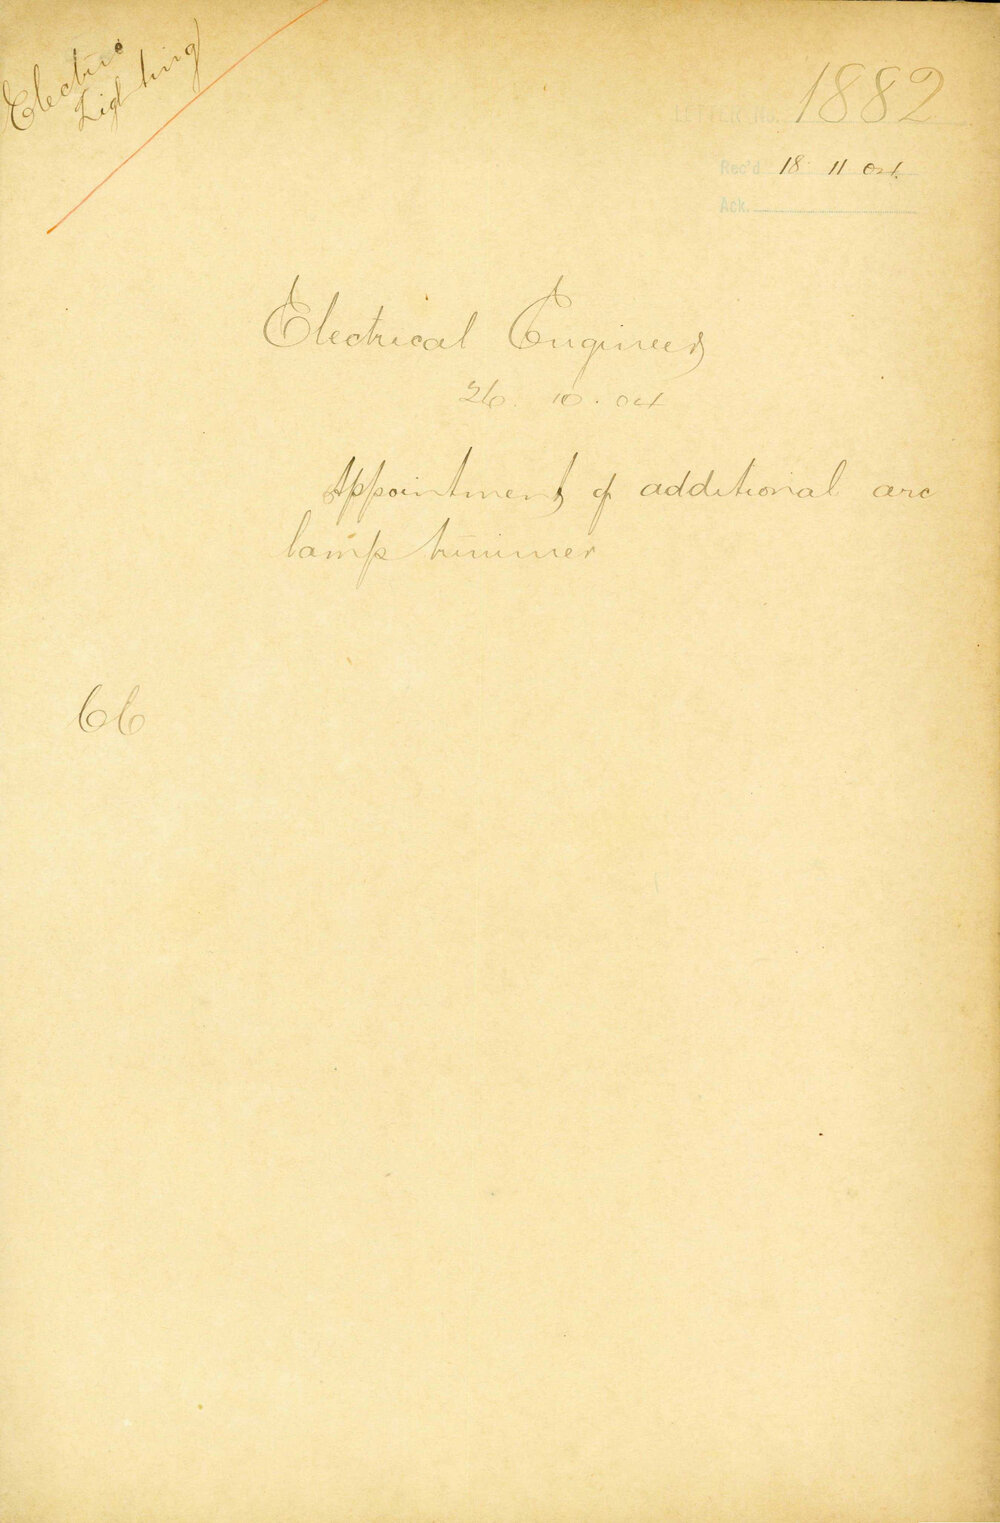 Electric
Lighting
LETTER No. 1882
Rec'd 18 11 04.
Ack.
Electrical Engineer
26. 10. 04
Appointment of additional arc
lamp trimmer
66